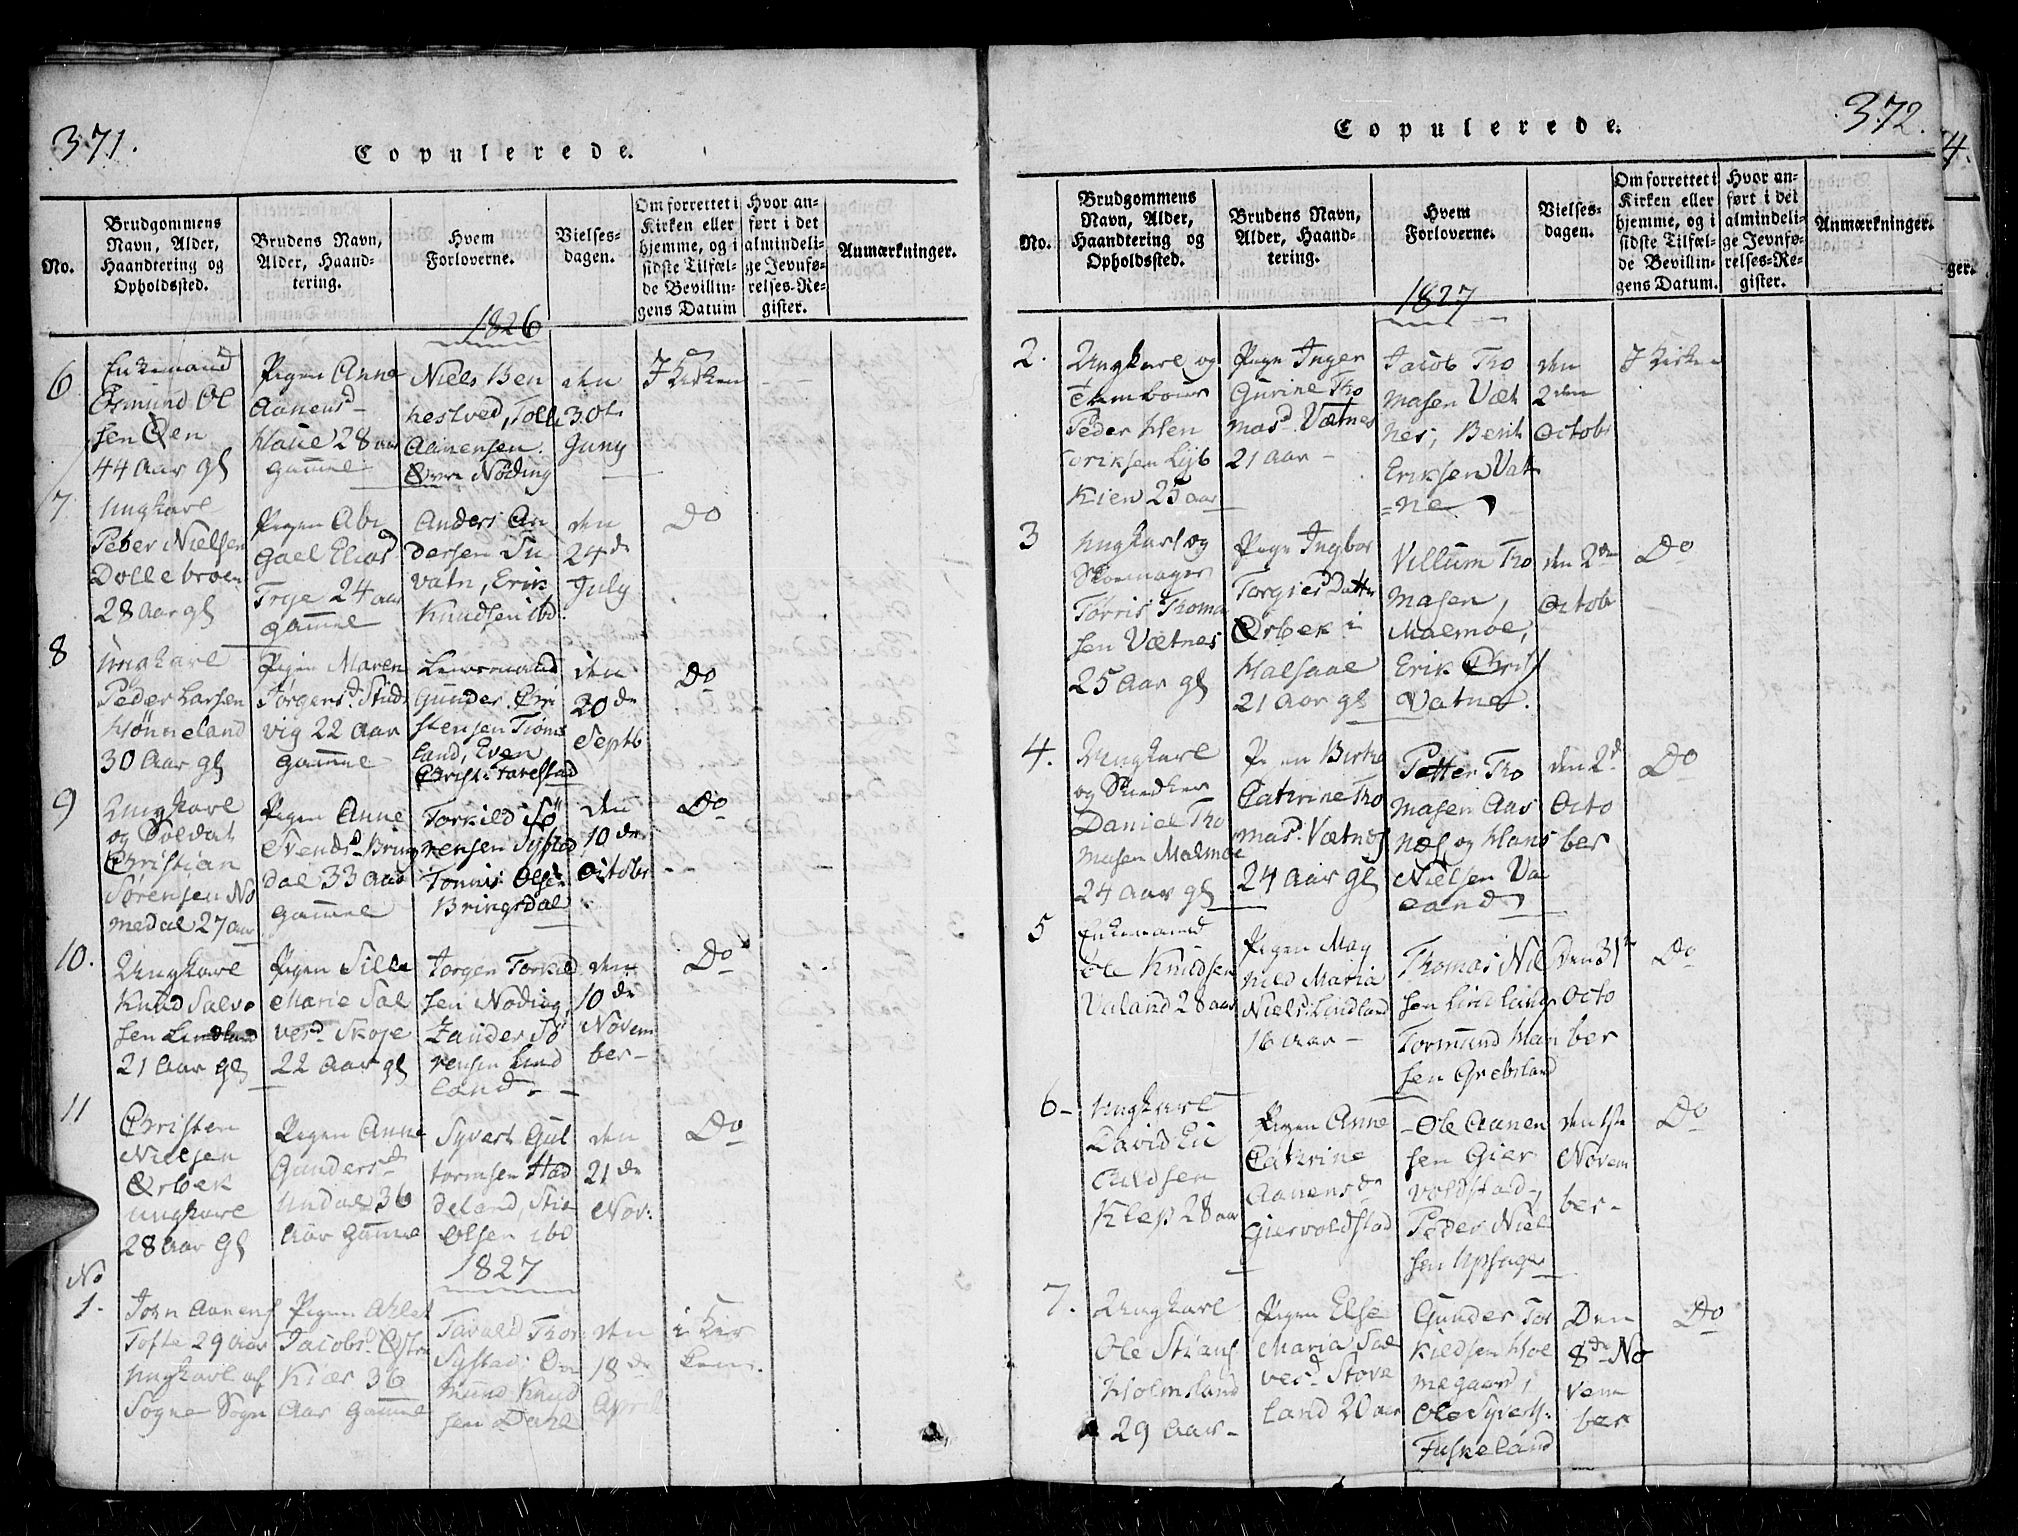 371.
Copulerede.
No.
Brudgommens
Navn, Alder,
Haandtering og
Opholdssted.
Brudens Navn,
Alder, Haand-
tering.
Hvem
Forloverne.
Vielses-
dagen.
Om forrettet i
Kirken eller
hjemme, og i
sidste Tilfæl-
de Bevillin-
gens Datum
Hvor an-
ført i det
almindeli-
ge Jevnfø-
relses-Re-
gister.
Anmærkninger.
1826
6
Enkemand
Osmund Ol
sen Øen
44 Aar gl
Pigen Anne
Aanensd
Haue 28 aar
gammel
Niels Ben
hestved, Tolle
Aanensen
Øvre Nøding
den
30t
Juny
I Kirken
7
Ungkarl
Peter Nielsen
Dollebroen
28 Aar gl
Pigen Abi
gael Eliasd
Trye 24 aar
gammel
Anders An
dersen Tu
vatn, Erik
Knudsen ibd
den
24de
July
Do
8
Ungkarl
Peder Larsen
Hønneland
30 Aar gl
Pigen Maren
Jørgensd. Studs
vig 22 Aar
gammel
Lensmand
Gunder Chri
stensen Tiøms
land, Even
Christ: Farestad
den
20de
Septb
Do
9
Ungkarl
og Soldat
Christian
Sørensen No
medal 27 aar
Pigen Anne
Svendsd. Bring
dal 33 Aar
gammel
Torkild Sø
rensen Systad
Tønnis Olsen
Bringsdal
den
10de
Octobr
Do
10.
Ungkarl
Knud Salve
sen Lindland
21 Aar gl
Pigen Sille
Marie Sal
vesd. Skoje
22 Aar gl
Jørgen Torkild
sen Noding,
Zander Sø
rensen Lind
land
den
10de
Novem
ber
Do
11
Christen
Nielsen
Ørbek
Ungkarl
28 Aar gl
Pigen Anne
Gundersd
Undal 36
Aar gammel
Syvert Gut
tormsen Had
deland, Stie
Olsen ibd
den
21de
Nov:
Do
1827
No
1.
John Aanens
Tofte 29 Aar
Ungkarl af
Sogne Sogn
Pigen Ahlet
Jacobsd. Østre
Kiær 36
Aar gammel
Tavald Thor
Systad; Os
mund Knud
sen Dahl
den
18de
April
i Kir
ken.
372.
Copulerede.
No.
Brudgommens
Navn, Alder,
Haandtering og
Opholdssted.
Brudens Navn,
Alder, Haand-
tering.
Hvem
Forloverne.
Vielses-
dagen.
Om forrettet i
Kirken eller
hjemme, og i
sidste Tilfæl-
de Bevillin-
gens Datum.
Hvor an-
ført i det
almindeli-
ge Jevnfø-
relses-Re-
gister.
Anmærkninger.
1827
2.
Ungkarl og
Tambour
Peder Hen
Pige Inger
Gurine Tho
masd. Vætnes
21 Aar
Jacob Tho
masen Væt
nes, Berit
Eriksen Vat
=ne
den
2den
Octobr
I Kirken
Kien 25 aar
3
Ungkarl og
Skomager
Tørris Thoma
sen Vætnes
25 Aar gl
Pige Ingbor
Torgiesd Datter
Ørbek i
Halsaae
21 Aar gl
Villum Tho
masen,
Malmøe,
Erik Christ
Vatne.
den 2den
Octobr
Do
4.
Ungkarl
og Snedker
Daniel Tho
masen Malmøe
24 Aar gl
Pigen Birthe
Cathrine Tho
masd. Vætnes
24 Aar gl
Petter Tho
masen Aas
næs og Hans
Nielsen Va
land
den 2d
Octo
ber
Do
5
Enkemand
Ole Knudsen
Valand 28 aar
Pigen Mag
nild Maria
Niels: Lindland
16 Aar
Thomas Niel
sen Lindland
Tormund Han
sen Grebsland
Den 31te
Octo
ber
Do
6
Ungkarl
David Ei
Klep 28 aar
Pigen Anne
Cathrine
Aanensd
Giervoldstad
Ole Aanen
sen Gier
voldstad,
Peder Niel
sen Upsager
den 1ste
Novem
ber
Do
7.
Ungkarl
Ole Stians
Holmsland
29 Aar
Pigen Else
Maria Sal
vesd. Stove
land 20 aar
Gunder Tor
kildsen Hol
megaard,
Ole Syverts.
Fuskeland
Den
8de No
vem
ber
Do
4.
ger.